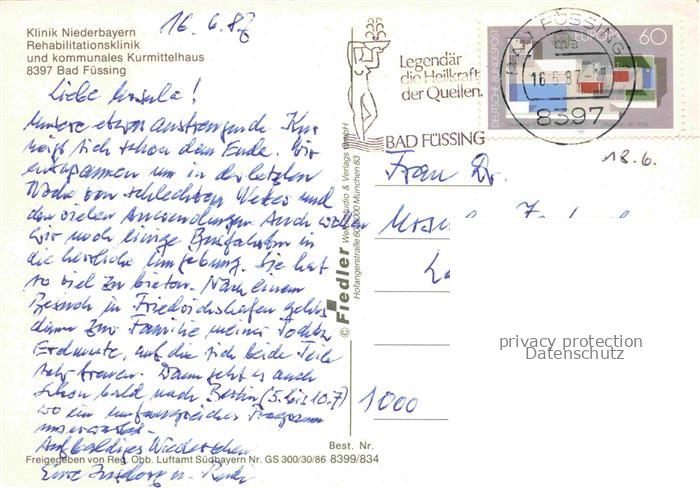 16.6.87
Klinik Niederbayern
Rehabilitationsklinik
und kommunales Kurmittelhaus
8397 Bad Füssing
Liebe Ursula!
Unsere etwas anstrengende Kur
neigt sich schon dem Ende. Wir
entspannen uns in der letzten
Woche vom schlechten Wetter und
den vielen Anwendungen. Auch wollen
wir noch einige Busfahrten in
die herrliche Umgebung. Sie hat
so viel zu bieten. Nach einem
Besuch in Friedrichshafen gehts
dann zur Familie meiner Tochter
auf die sich beide Teile
sehr freuen. Dann geht es auch
schon bald nach Berlin (5. bis 10.7)
wo ein umfangreiches Programm
uns erwartet.
Auf baldiges Wiedersehen
Eure u.
Freigegeben von Reg. Obb. Luftamt Südbayern Nr. GS 300/30/86
Best. Nr.
8399/834
© Fiedler Werbestudio & Verlags GmbH
Hofangerstraße 60, 8000 München 83
Legendär
die Heilkraft
der Quellen.
BAD FÜSSING
DEUTSCHE BUNDESPOST
EUROPA
60
BAD FÜSSING
16.6.87
8397
18.6.
Frau Dr.
1000
privacy protection
Datenschutz